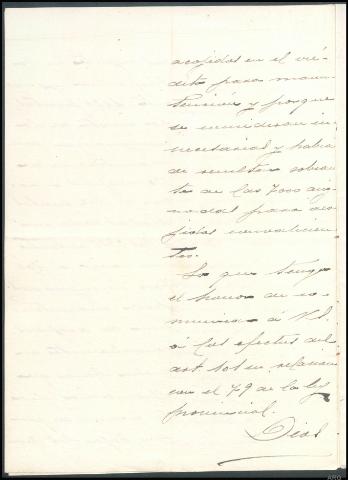 acojidos en el cré-
dito para manu-
tención y porque
se considerán in-
necesarias y había
de resultar sobran-
te de las 7000 asig-
nadas para aco-
jidos convalecien-
tes.
Lo que tengo
el honor de co-
municar á V.S.
á los efectos del
art. 101 en relación
con el 79 de la ley
provincial.
Dios